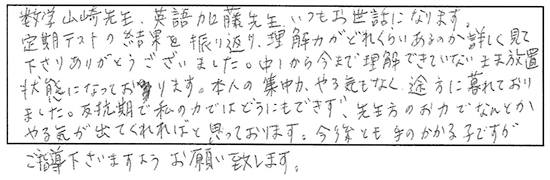 数学山崎先生、英語加藤先生、いつもお世話になります。
定期テストの結果を振り返り、理解力がどれくらいあるのか詳しく見て
下さりありがとうございました。中1から今まで理解できていないまま放置
状態になっております。本人の集中力、やる気もなく、途方に暮れており
ました。反抗期で私の力ではどうにもできず、先生方のお力でなんとか
やる気が出てくれればと思っております。今後とも手のかかる子ですが
ご指導下さいますようお願い致します。